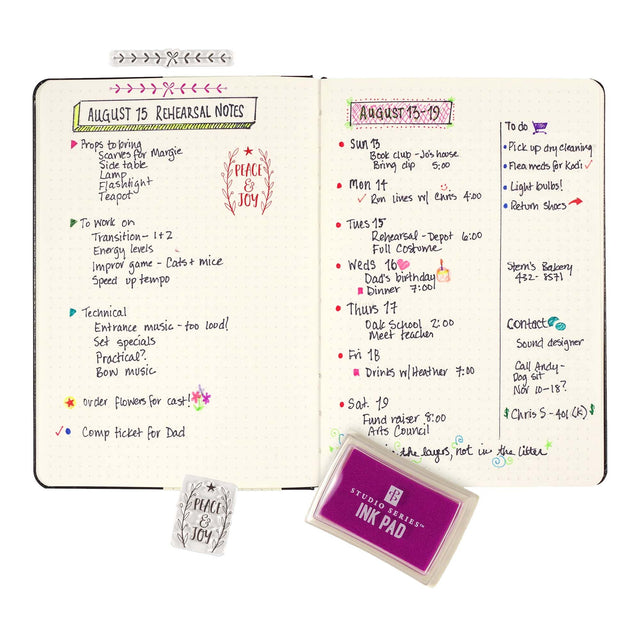 AUGUST 15 REHEARSAL NOTES
Props to bring
Scarves for Margie
Side table
Lamp
Flashlight
Teapot
PEACE
&
JOY
To work on
Transition - 1+2
Energy levels
Improv game - Cats + mice
Speed up tempo
Technical
Entrance music - too loud!
Set specials
Practical?
Bow music
order flowers for cast!
Comp ticket for Dad
AUGUST 13-19
Sun 13
Book club - Jo's house
Bring dip 5:00
Mon 14
Run lines w/ Chris 4:00
Tues 15
Rehearsal - Depot 6:00
Full Costume
Weds 16
Dad's birthday
Dinner 7:00
Thurs 17
Oak School 2:00
Meet teacher
Fri 18
Drinks w/ Heather 7:00
Sat. 19
Fund raiser 8:00
Arts Council
To do
Pick up dry cleaning
Flea meds for Kodi
Light bulbs!
Return shoes
Stern's Bakery
432-8571
Contact
Sound designer
Call Andy-
Dog sit
Nov 10-18?
$ Chris S - 401(k) $
the layers, not in the litter
PEACE
&
JOY
STUDIO SERIES™
INK PAD